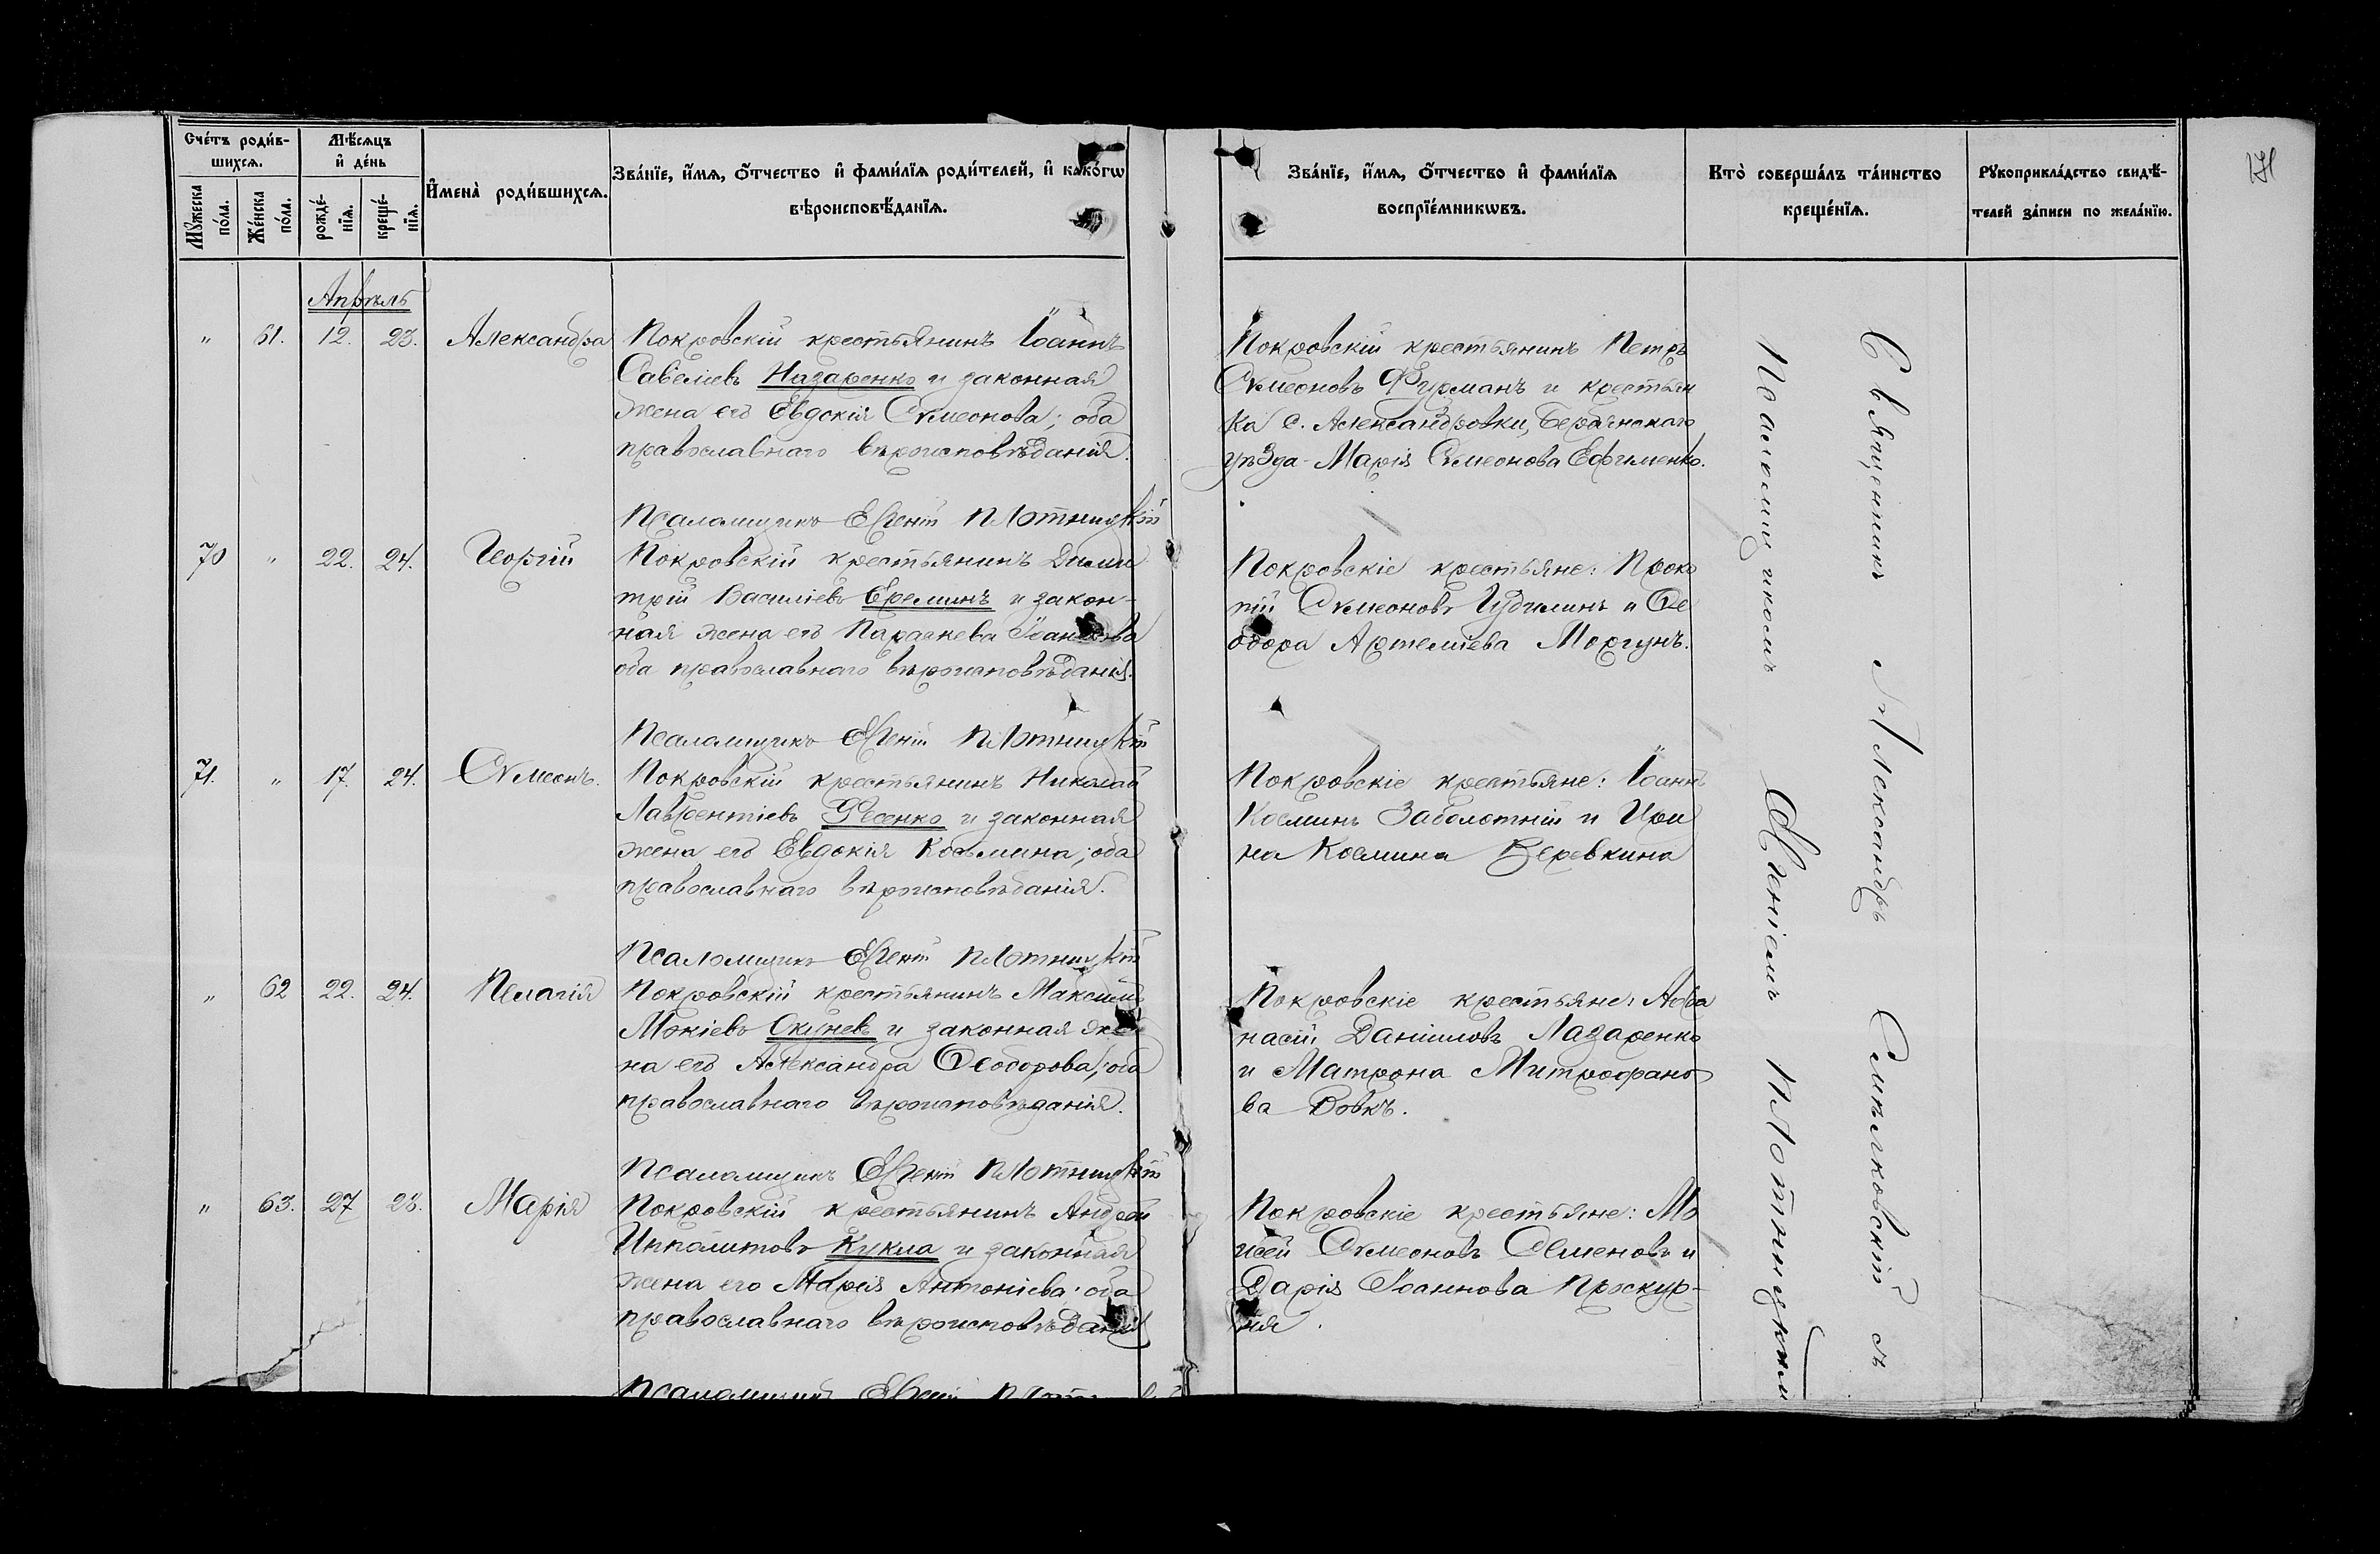 171
Счетъ родив-
шихся.
Мужеска пола.
Женска пола.
Мѣсяцъ
и день
рожде-
нія.
креще-
нія.
Имена родившихся.
Званіе, имя, отчество и фамилія родителей, и какогѡ
вѣроисповѣданія.
Званіе, имя, отчество и фамилія
воспріемникѡвъ.
Кто совершалъ таинство
крещенія.
Рукоприкладство свидѣ-
телей записи по желанію.
Апрѣль
" 61. 12. 23. Александра
Покровскій крестьянинъ Іоаннъ
Савеліевъ Назаренко и законная
жена его Евдокія Сѵмеонова; оба
православнаго вѣроисповѣданія.
Покровскій крестьянинъ Петръ
Сѵмеоновъ Фурманъ и крестьян
ка с. Александровки, Бердянскаго
уѣзда - Марія Сѵмеонова Ефименко.
Псаломщикъ Евгеній Плотницкій
70 " 22. 24. Георгій
Покровскій крестьянинъ Дими
трій Василіевъ Ереминъ и закон-
ная жена его Параскева Іоаннова
оба православнаго вѣроисповѣданія.
Покровскіе крестьяне: Проко
пій Сѵмеоновъ Чудилинъ и Ѳе
одора Артеміева Моргунъ.
Псаломщикъ Евгеній Плотницкій
71. " 17. 24. Сѵмеонъ.
Покровскій крестьянинъ Николай
Лаврентіевъ Фесенко и законная
жена его Евдокія Косьмина; оба
православнаго вѣроисповѣданія.
Покровскіе крестьяне: Іоаннъ
Косминъ Заболотній и Ири
на Космина Веревкина
Псаломщикъ Евгеній Плотницкій
" 62 22. 24. Пелагія
Покровскій крестьянинъ Максимъ
Мокіевъ Окуневъ и законная же
на его Александра Ѳеодорова; оба
православнаго вѣроисповѣданія.
Покровскіе крестьяне: Аѳа
насій Даніиловъ Лазаренко
и Матрона Митрофано
ва Вовкъ.
Псаломщикъ Евгеній Плотницкій
" 63. 27 28. Марія
Покровскій крестьянинъ Андрей
Ипполитовъ Кукла и законная
жена его Марія Антоніева; оба
православнаго вѣроисповѣданія
Покровскіе крестьяне: Мо
исей Сѵмеоновъ Семеновъ и
Дарія Іоаннова Проскур-
ня.
Псаломщикъ Евгеній
Священникъ Александръ Смѣлковскій съ
Псаломщикомъ Евгеніемъ Плотницким